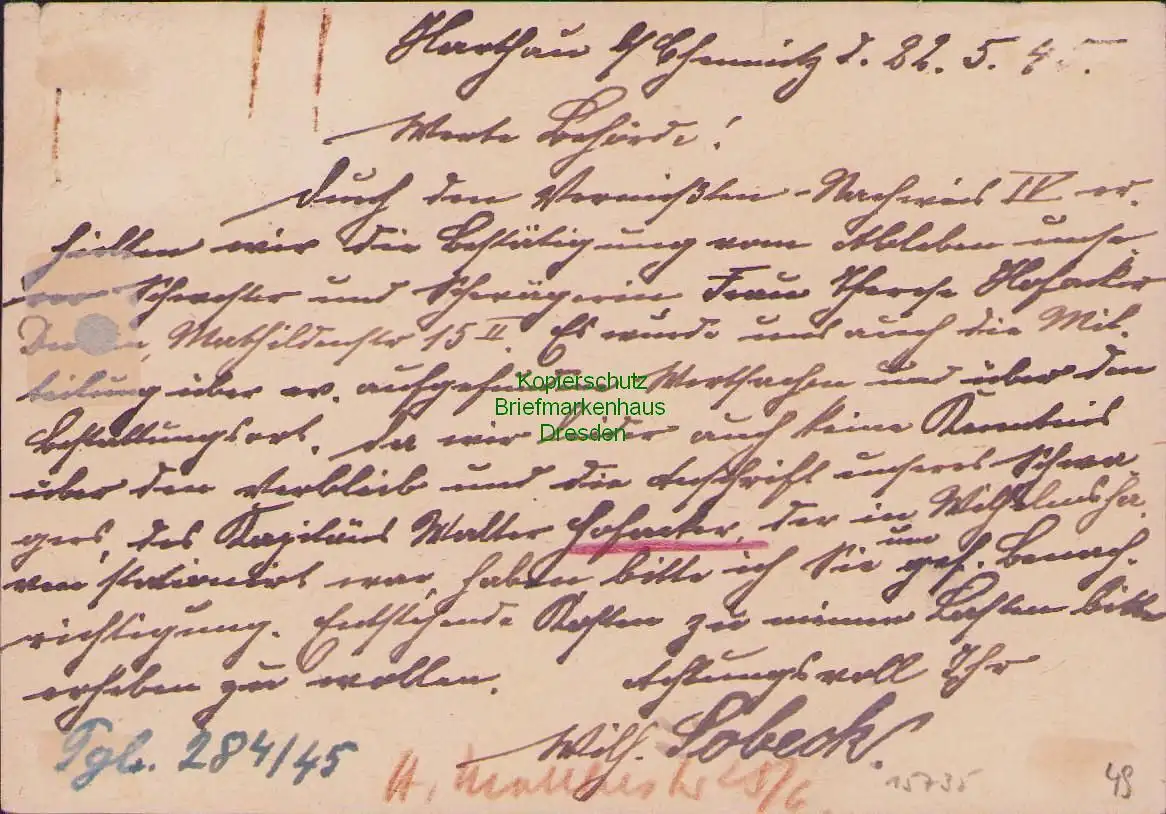 Harthau b/ Chemnitz d. 22. 5. 45.
Werte Behörde!
Durch den Vermißten-Nachweis IV er-
hielten wir die Bestätigung vom Ableben unse-
rer Schwester und Schwägerin Frau Therese Hofacker
Mathildenstr 15 II. Es wurde uns auch die Mit-
teilung über ev. aufgefundene Wertsachen und über den
Bestattungsort. Da wir leider auch keine Kenntnis
über den Verbleib und die Anschrift unseres Schwa-
gers, des Kapitäns Walter Hofacker, der in Wilhelmsha-
ven stationirt war, haben bitte ich Sie um gef. Benach-
richtigung. Entstehende Kosten zu meinen Lasten bitte
erheben zu wollen. Achtungsvoll Ihr
Wilh. Lobeck.
Tgb. 284/45
28/6
15735
49
Kopierschutz
Briefmarkenhaus
Dresden